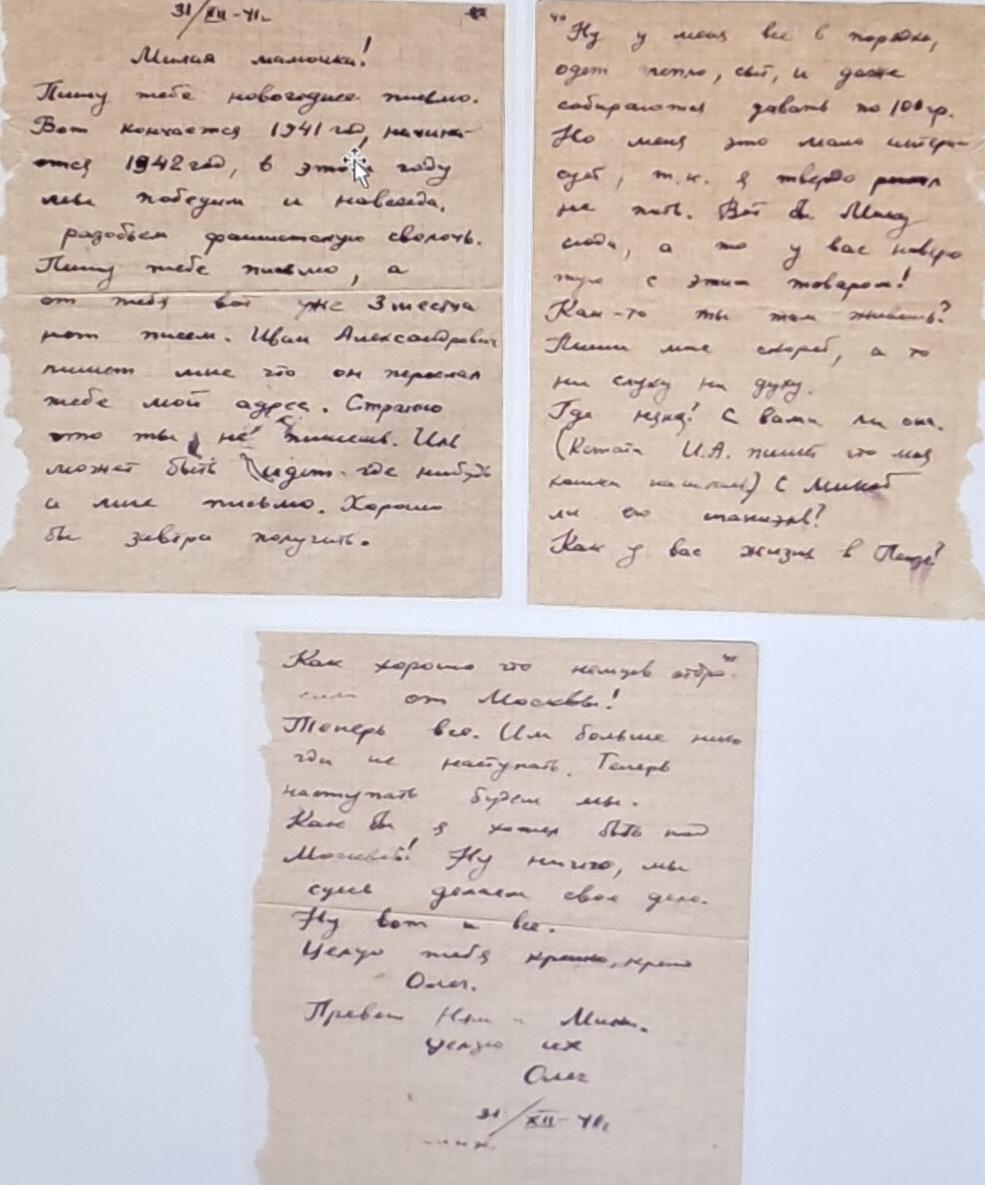 31/XII-41г.
Милая мамочка!
Пишу тебе новогоднее письмо.
Вот кончается 1941 год, начина-
ется 1942 год, в этом году
мы победим и навсегда,
разобьем фашистскую сволочь.
Пишу тебе письмо, а
от тебя вот уже 3 месяца
нет писем. Иван Александрович
пишет мне что он переслал
тебе мой адрес. Странно
что ты не пишешь. Иль
может быть идет где нибудь
и мне письмо. Хорошо
бы завтра получить.
Ну у меня все в порядке,
одет тепло, сыт, и даже
собираются давать по 100 гр.
Но меня это мало интере-
сует, т.к. я твердо решил
не пить. Вот бы Мишу
сюда, а то у вас наверно
туго с этим товаром!
Как-то ты там живешь?
Пиши мне скорей, а то
ни слуху ни духу.
Где няня? С вами ли она.
(Кстати И.А. пишет что моя
кошка нашлась) С Мишей
ли его
Как у вас жизнь в Пензе?
Как хорошо что немцев отбро-
сили от Москвы!
Теперь все. Им больше нико
гда не наступать. Теперь
наступать будем мы.
Как бы я хотел быть под
Москвой! Ну ничего, мы
здесь делаем свое дело.
Ну вот и все.
Целую тебя крепко, крепко
Олег.
Привет Няне и Мише.
Целую их
Олег
31/XII-41г.